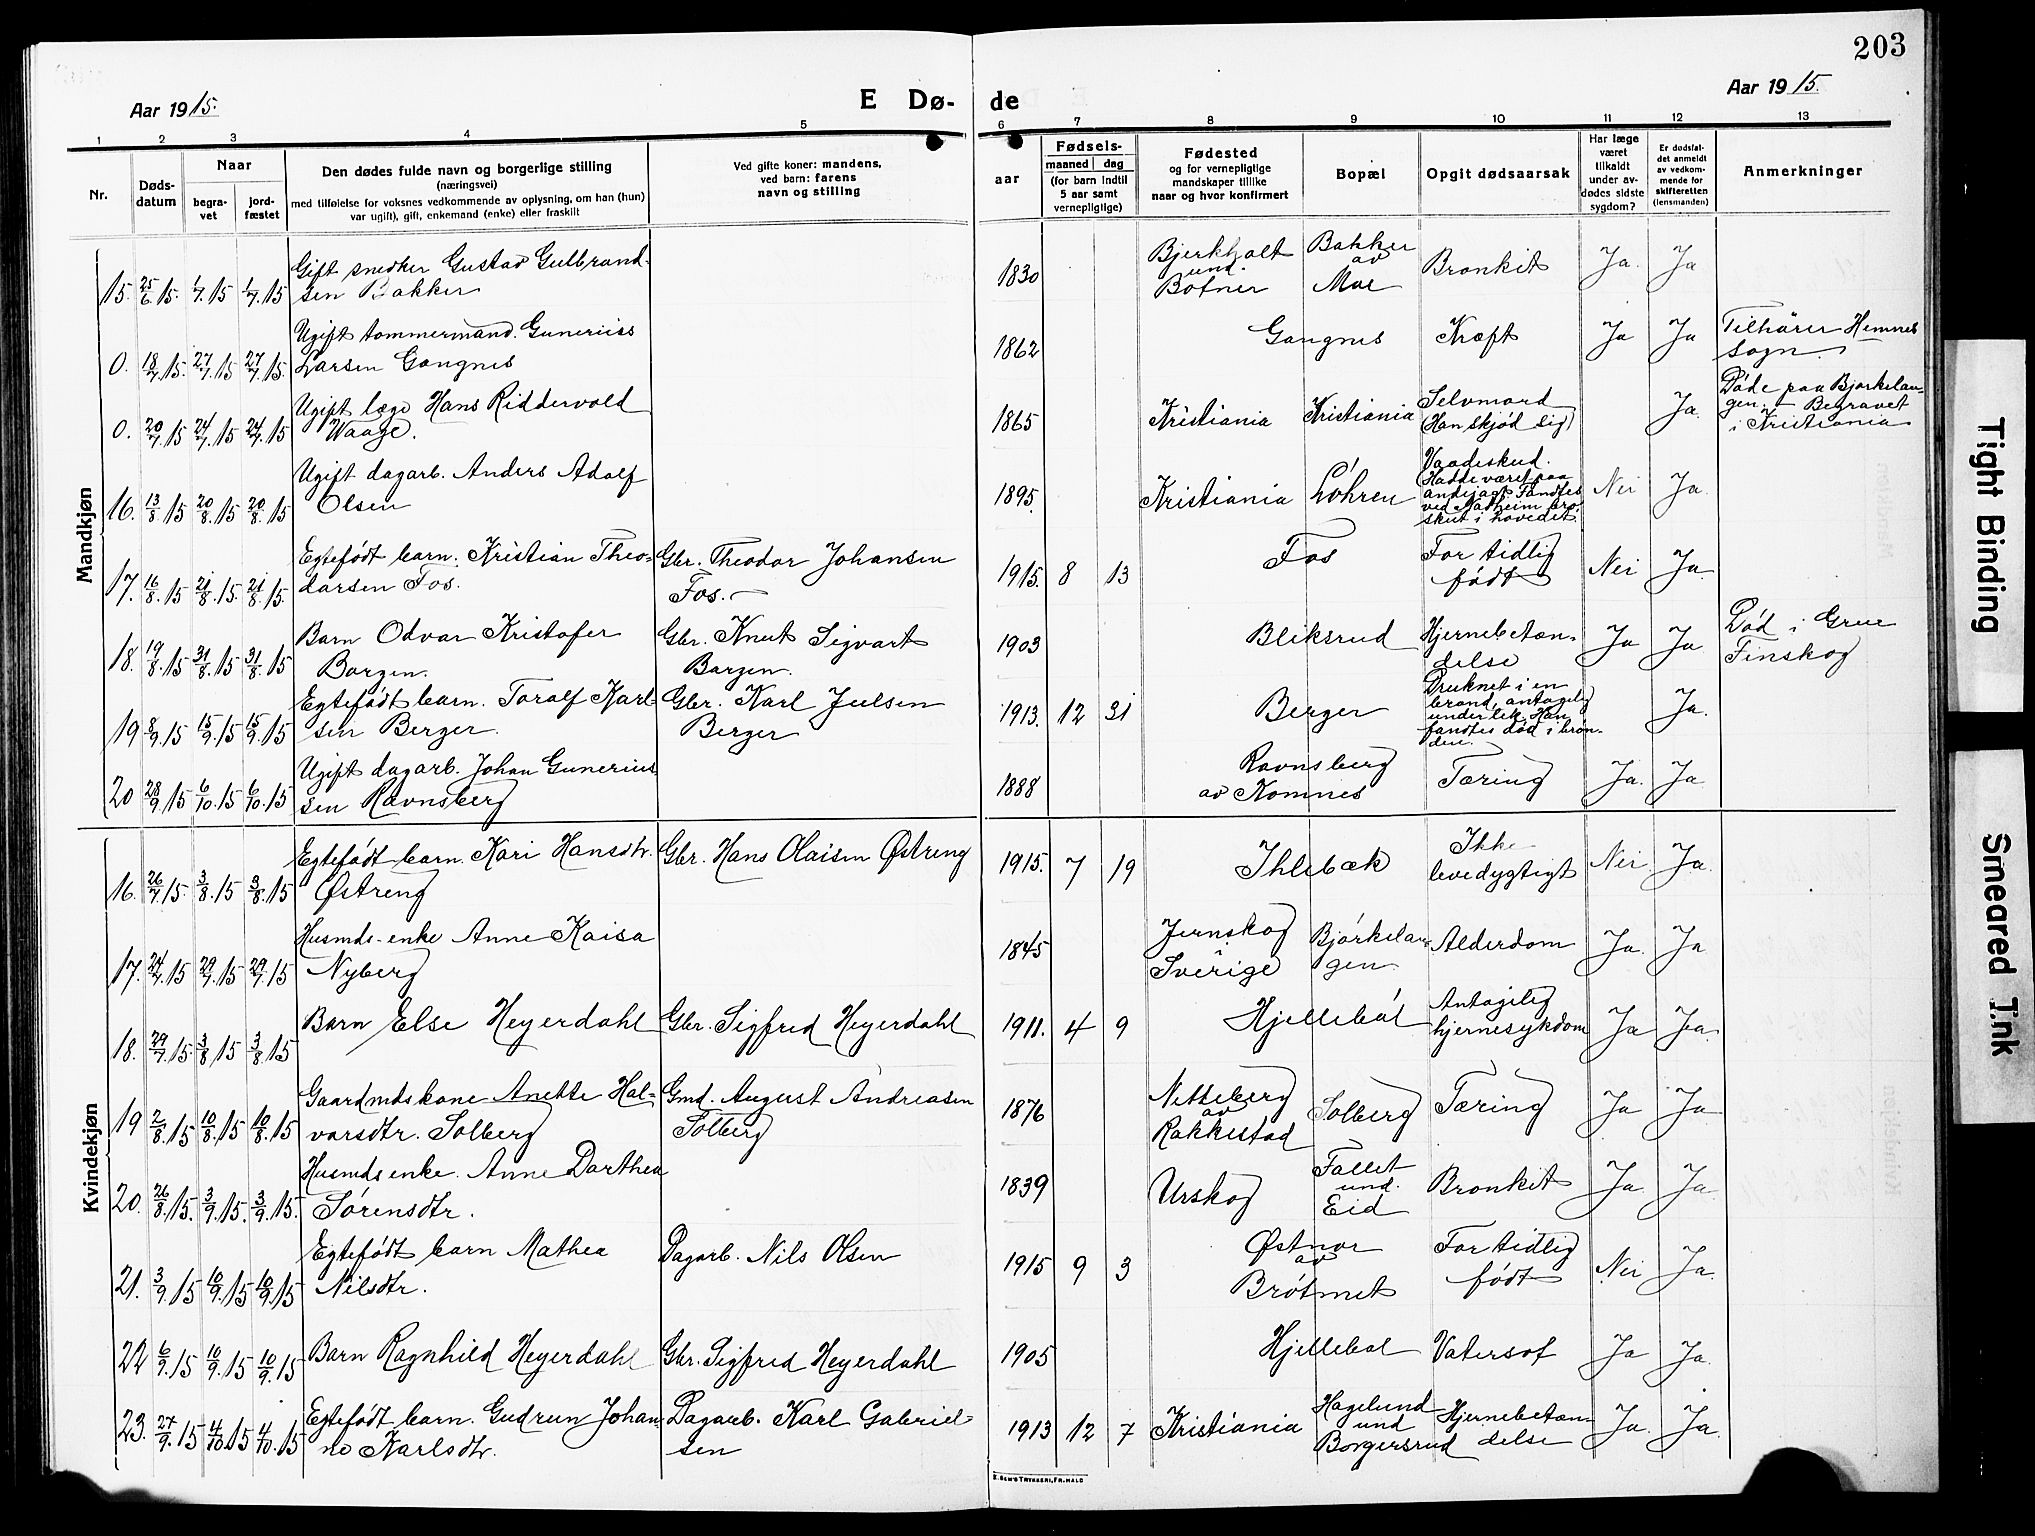 203
Aar 1915.
E Dø-
de
Aar 1915.
1 2 3 4 5 6 7 8 9 10 11 12 13
Nr.
Døds-
datum
Naar
begra-
vet
jord-
fæstet
Den dødes fulde navn og borgerlige stilling
(næringsvei)
med tilføielse for voksnes vedkommende av oplysning, om han (hun)
var ugift), gift, enkemand (enke) eller fraskilt
Ved gifte koner: mandens,
ved barn: farens
navn og stilling
Fødsels-
aar
maaned dag
(for barn indtil
5 aar samt
vernepligtige)
Fødested
og for vernepligtige
mandskaper tillike
naar og hvor konfirmert
Bopæl
Opgit dødsaarsak
Har læge
været
tilkaldt
under av-
dødes sidste
sygdom?
Er dødsfal-
det anmeldt
av vedkom-
mende for
skifteretten
(lensmanden)
Anmerkninger
Mandkjøn
15. 25/6.15. 1/7.15 1/7.15
Gift snedker Gustav Gulbrand-
sen Bakker
1830
Bjerkholt
und.
Botner
Bakker
av
Moe
Bronkit
Ja. Ja
0. 18/7.15. 27/7.15 27/7.15.
Ugift tømmermand. Gunerius
Larsen Gangnes
1862
Gangnes
Kræft
Ja Ja
Tilhører Hemnes
sogn.
0. 20/7.15 24/7.15 24/7.15
Ugift læge Hans Riddervold
Waage.
1865
Kristiania
Kristiania
Selvmord
(Han skjød sig)
Ja.
Døde paa Bjørkelan-
gen. - Begravet
i Kristiania
16. 13/8.15 20/8.15 20/8.15
Ugift dagarb. Anders Adolf
Olsen
1895.
Kristiania
Løhren
Vaadeskud.
(Hadde været paa
andejagt. Fandtes
ved
skut i hovedet.
Nei Ja.
17. 16/8.15 21/8.15. 21/8.15.
Egtefødt barn. Kristian Theo-
dorsen Fos.
Gbr. Theodor Johansen
Fos. —
1915. 8 13
Fos
For tidlig
født
Nei Ja.
18. 19/8.15 31/8.15 31/8.15
Barn Odvar Kristofer
Borgen.
Gbr. Knut Sigvart
Borgen.
1903
Bliksrud
Hjernebetæn-
delse
Ja Ja
Død i Grue
Finskog
19 8/9.15 15/9.15 15/9.15
Egtefødt barn. Toralf Karl-
sen Berger.
Gbr. Karl Julsen
Berger
1913. 12 31
Berger
Druknet i en
brønd, antagelig
under lek. Han
fandtes død i brøn-
den.
Ja.
20 28/9.15 6/10.15 6/10.15
Ugift dagarb. Johan Gunerius-
sen Ravnsberg
1888
Ravnsberg
av Komnes
Tæring
Ja. Ja
Kvindekjøn
16. 26/7.15. 3/8.15 3/8.15
Egtefødt barn. Kari Hansdtr.
Østreng
Gbr. Hans Olaisen Østreng
1915. 7 19
Ihlebæk
Ikke
levedygtigt
Nei Ja.
17. 24/7.15 29/7.15 29/7.15
Husmds. enke Anne Kaisa
Nyberg
1845
Jernskog
i
Sverige
Bjørkelan-
gen
Alderdom
Ja. Ja
18. 29/7.15. 3/8.15 3/8.15
Barn Else Heyerdahl
Gbr. Sigfred Heyerdahl
1911. 4 9
Hjellebøl
Antagelig
hjernesykdom
Ja Ja.
19 2/8.15 10/8.15 10/8.15
Gaardmdskone Anette Hal-
vorsdtr. Solberg
Gmd. August Andreasen
Solberg
1876
Netteberg
av
Rakkestad
Solberg
Tæring
Ja Ja
20. 26/8.15. 3/9.15. 3/9.15.
Husmds enke. Anne Dorthea
Sørensdtr.
1839
Urskog
Fallet
und.
Eid
Bronkit
Ja Ja
21. 3/9.15 10/9.15 10/9.15
Egtefødt barn Mathea
Nilsdtr.
Dagarb. Nils Olsen
1915 9 3
Østnor
av
Brøtmet
For tidlig
født
Nei Ja.
22 6/9.15 10/9.15 10/9.15
Barn Ragnhild Heyerdahl
Gbr. Sigfred Heyerdahl
1905
Hjellebøl
Vatersot
Ja Ja.
23. 27/9.15 4/10.15 4/10.15
Egtefødt barn. Gudrun Johan-
ne Karlsdtr.
Dagarb. Karl Gabriel-
sen
1913 12 7
Kristiania
Hagelund
und
Borgersrud
Hjernebetæn-
delse
Ja. Ja.
Tight Binding
Smeared Ink